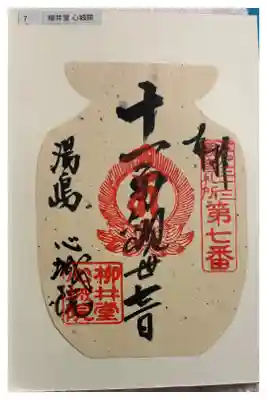 7 柳井堂 心城院
拝
札所
第七番
十一面観世音
湯島 心城院
柳井堂
心城院